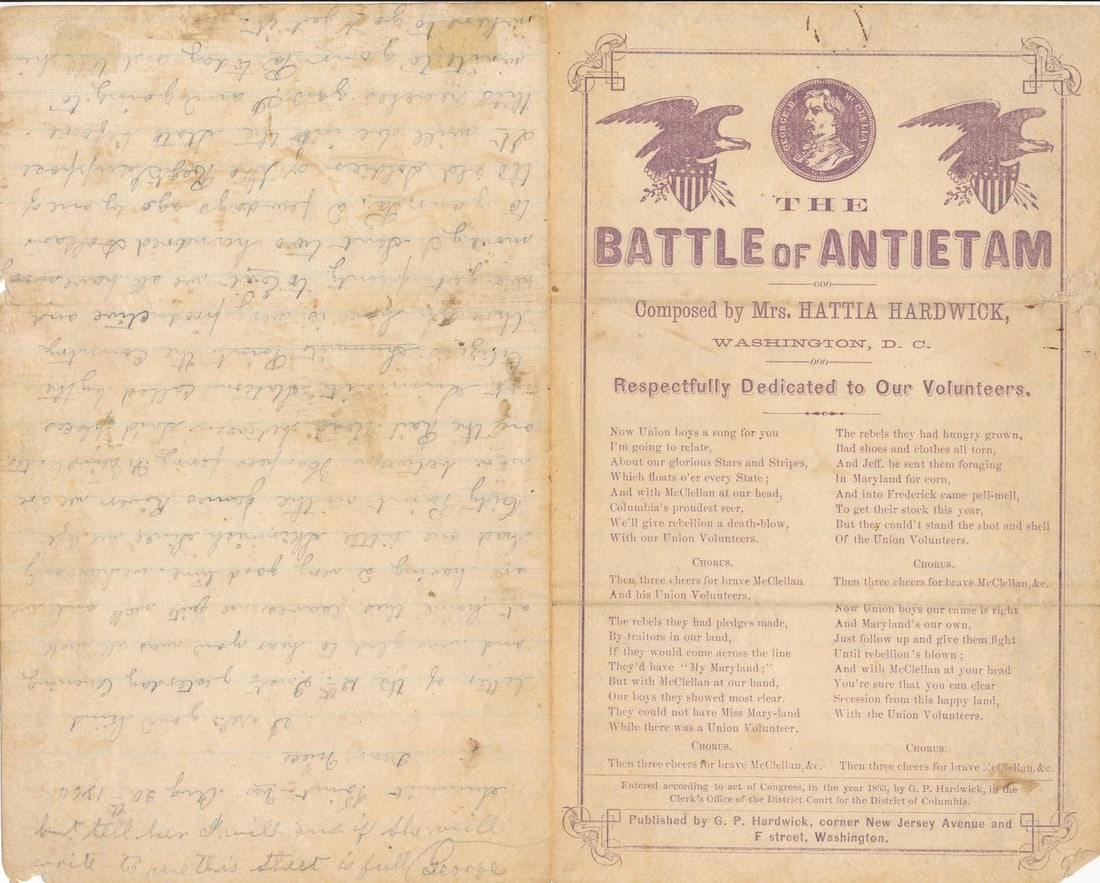 Summit Point Va Aug 20th 1864
Dear Niece
I rec'd your kind
letter of the 12th Inst yesterday evening
and was glad to hear you was all well
at home this leaves me quit well and we
are having a very good time we
had one little skirmish since we left
City Point on the James River we are
now between Harpers ferry, & Winchester
on the Rail Road between said places
at Summit Station called by the
Citizens Summit Point the Country
through here is very productive and
we get plenty to eat we all have our
money, I sent two hundred dollars
to your Pa, a few days ago by one of
the old soldiers of the Regt & suppose
it will be in the state before
this reaches you I am going to
write to your Pa to day and tell him
where to go & get it.
but tell her I will ans if she will
write this sheet is full
GEORGE B. McCLELLAN
THE
BATTLE OF ANTIETAM
Composed by Mrs. HATTIA HARDWICK,
WASHINGTON, D. C.
Respectfully Dedicated to Our Volunteers.
Now Union boys a song for you
I'm going to relate,
About our glorious Stars and Stripes,
Which floats o'er every State;
And with McClellan at our head,
Columbia's proudest seer,
We'll give rebellion a death-blow,
With our Union Volunteers.
CHORUS.
Then three cheers for brave McClellan
And his Union Volunteers.
The rebels they had pledges made,
By traitors in our land,
If they would come across the line
They'd have "My Maryland;"
But with McClellan at our hand,
Our boys they showed most clear.
They could not have Miss Mary-land
While there was a Union Volunteer.
CHORUS.
Then three cheers for brave McClellan, &c.
The rebels they had hungry grown,
Bad shoes and clothes all torn,
And Jeff. he sent them foraging
In Maryland for corn,
And into Frederick came pell-mell,
To get their stock this year,
But they could't stand the shot and shell
Of the Union Volunteers.
CHORUS.
Then three cheers for brave McClellan, &c.
Now Union boys our cause is right
And Maryland's our own,
Just follow up and give them fight
Until rebellion's blown;
And with McClellan at your head
You're sure that you can clear
Secession from this happy land,
With the Union Volunteers.
CHORUS.
Then three cheers for brave McClellan, &c.
Entered according to act of Congress, in the year 1863, by G. P. Hardwick, in the
Clerk's Office of the District Court for the District of Columbia.
Published by G. P. Hardwick, corner New Jersey Avenue and
F street, Washington.